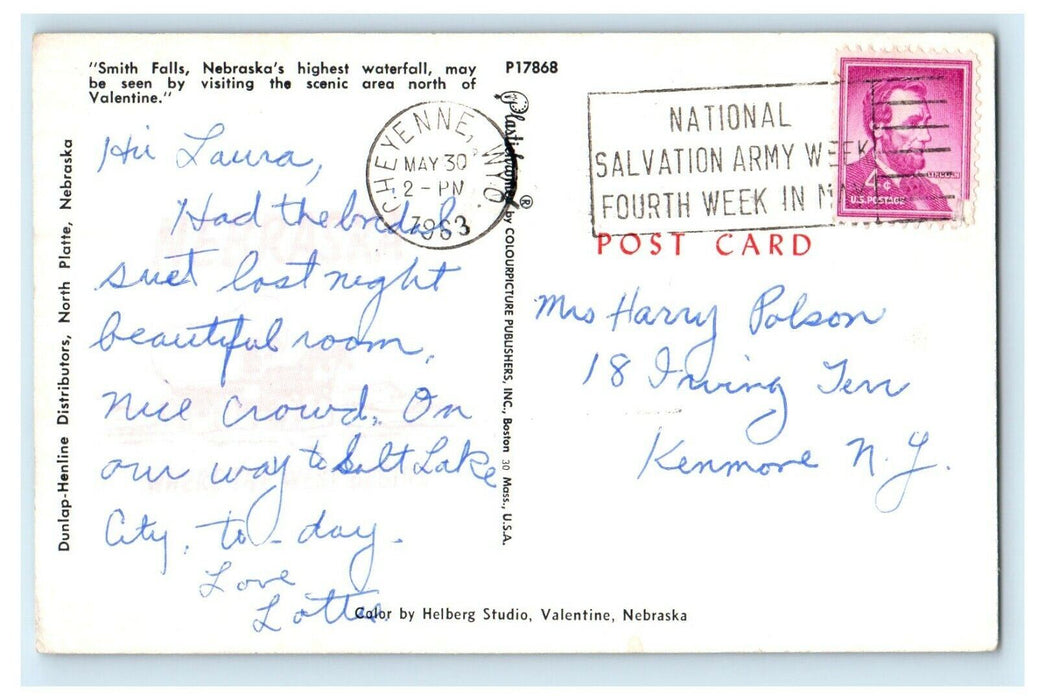 "Smith Falls, Nebraska's highest waterfall, may
be seen by visiting the scenic area north of
Valentine."
P17868
Dunlap-Henline Distributors, North Platte, Nebraska
Hi Laura,
Had the bridal
suet last night
beautiful room,
nice crowd. On
our way to Salt Lake
City, to-day.
Love
Lotta
Plastichrome® by COLOURPICTURE PUBLISHERS, INC., Boston 30 Mass., U.S.A.
Color by Helberg Studio, Valentine, Nebraska
CHEYENNE, WYO.
MAY 30
2-PM
1963
NATIONAL
SALVATION ARMY WEEK
FOURTH WEEK IN MAY
4¢
LINCOLN
U.S. POSTAGE
POST CARD
Mrs Harry Polson
18 Irving Terr
Kenmore N.Y.